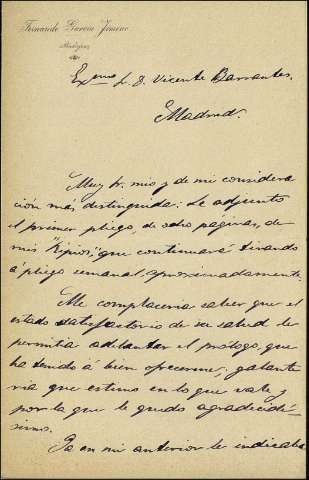 Fernando García Jimeno
Badajoz
Exmo Sr. D. Vicente Barrantes.
Madrid.
Muy Sr. mio y de mi considera
ción más distinguida: Le adjunto
el primer pliego, de ocho páginas, de
mis "Ripios", que continuará tirando
á pliego semanal, aproximadamente.
Me complacería saber que el
estado satisfactorio de su salud le
permitía adelantar el prólogo, que
ha tenido á bien ofrecerme, galante
ría que estimo en lo que vale y
por la que le quedo agradecidí-
simo.
Ya en mi anterior le indicaba